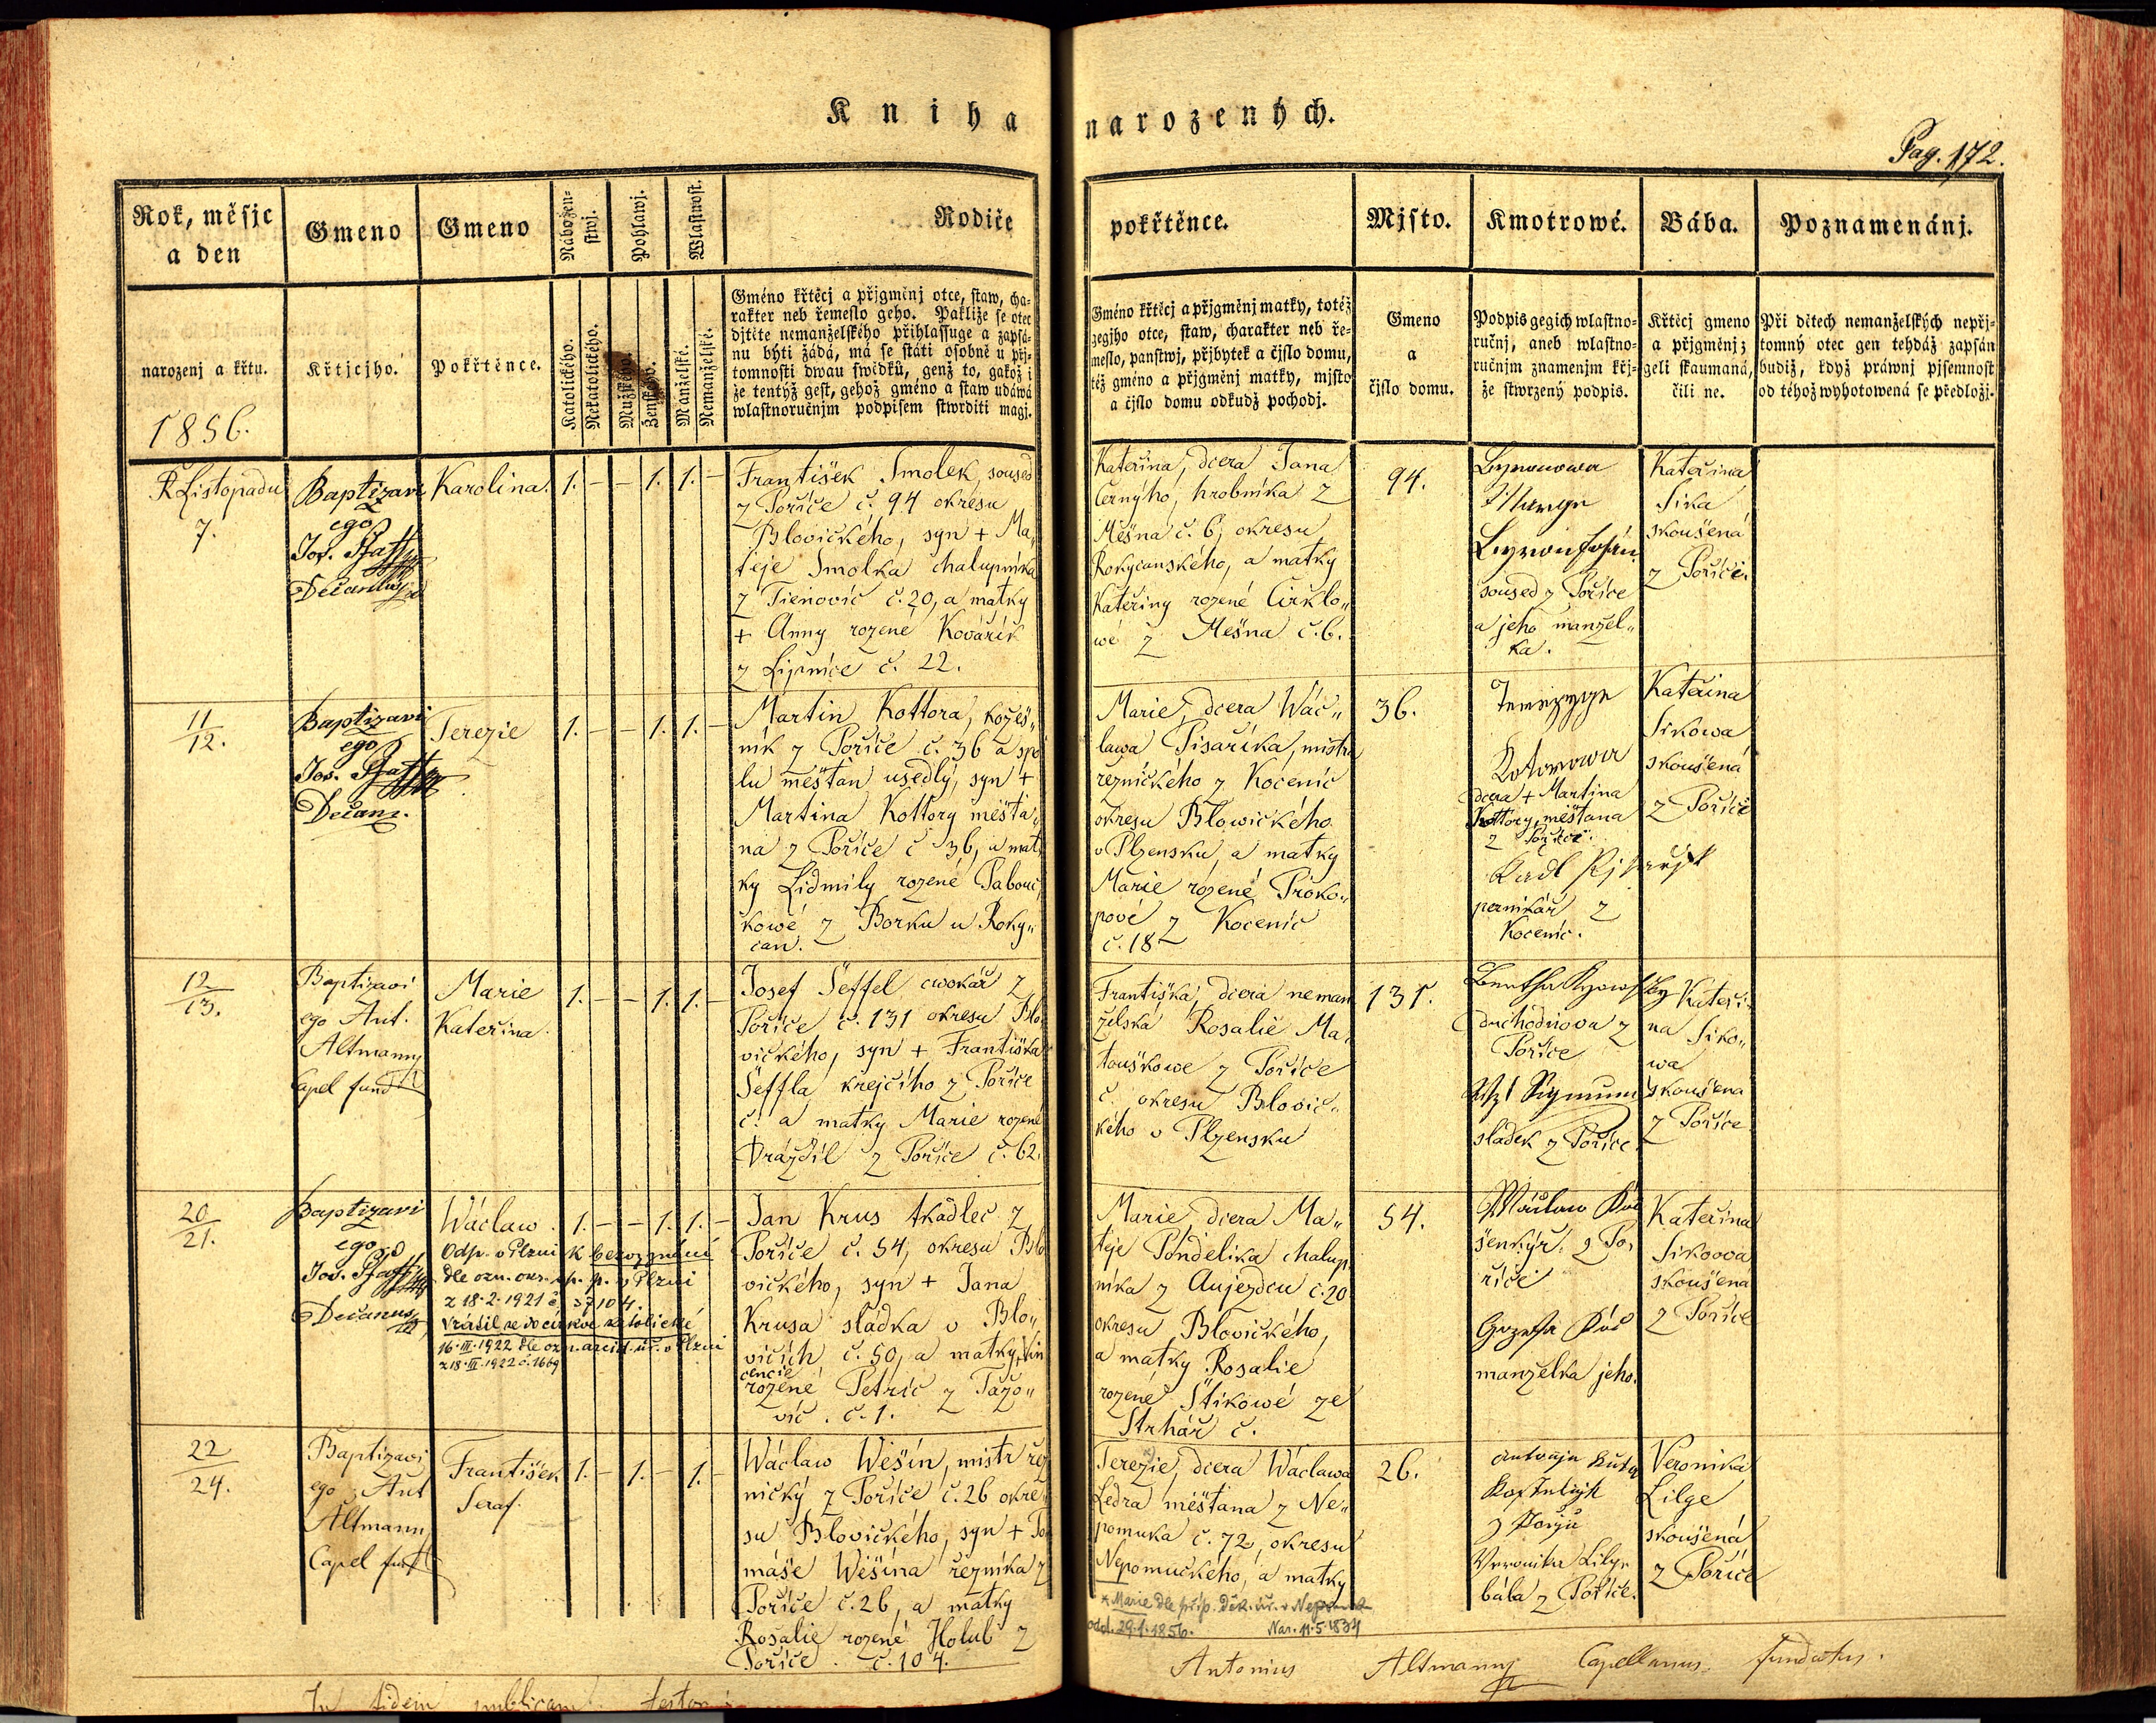 Kniha narozených.
Pag. 172.
Rok, měsjc
a den
Gmeno
Gmeno
Nábožen-
stwj.
Pohlawj.
Wlastnost.
Rodiče
pokřtěnce.
Mjsto.
Kmotrowé.
Bába.
Poznamenánj.
narozenj a křtu.
1856.
Křtjcjho.
Pokřtěnce.
Katolického.
Nekatolického.
Mužského.
Ženského.
Manželské.
Nemanželské.
Gméno křtěcj a přjgměnj otce, staw, cha-
rakter neb řemeslo geho. Pakliže se otec
djtěte nemanželského přihlassuge a zapsá-
nu býti žádá, má se státi osobně u přj-
tomnosti dwau swědků, genž to, gakož i
že tentýž gest, gehož gméno a staw udáwá
wlastnoručnjm podpisem stwrditi magj.
Gméno křtěcj a přjgměnj matky, totéž
gegjho otce, staw, charakter neb ře-
meslo, panstwj, přjbytek a čjslo domu,
též gméno a přjgměnj matky, mjsto
a čjslo domu odkudž pochodj.
Gmeno
a
čjslo domu.
Podpis gegich wlastno-
ručnj, aneb wlastno-
ručnjm znamenjm křj-
že stwrzený podpis.
Křtěcj gmeno
a přjgměnj;
geli skaumaná,
čili ne.
Při dětech nemanželských nepřj-
tomný otec gen tehdáž zapsán
budiž, když práwnj pjsemnost
od téhož wyhotowená se předložj.
Listopadu
7.
Baptizavi
ego
Jos.
Decanus
Karolina.
1. – – 1. 1. –
František Smolek, soused
z Poříče č. 94 okresu
Blovického, syn + Ma„
těje Smolka chalupníka
z Tienovic č. 20, a matky
+ Anny rozené Kovářík
z Lipnice č. 22.
Kateřina, dcera Jana
Černýho, hrobníka z
Mešna č. 6, okresu
Rokycanského, a matky
Kateřiny rozené Cirklo„
wé z Mešna č. 6.
94.
soused z Poříce
a jeho manžel„
ka.
Kateřina
Sika
skoušená
z Poříčí.
11
12.
Baptizavi
ego
Jos.
Decans.
Terezie
1. – – 1. 1. –
Martin Kottora, kožeš„
ník z Poříče č. 36 a spo
lu měštan usedlý, syn +
Martina Kottory měšťa„
na z Poříče č 36, a mat„
ky Lidmily rozené Pabouč„
kowé z Borku u Roky„
can.
Marie, dcera Wác„
lawa Pisaříka, mistra
řeznického z Kocenic
okresu Blowického
v Plzensku, a matky
Marie rozené Proko„
pové z Kocenic
č. 18
36.
Kotorowa
dcera + Martina
Kottory, měštana
z Poříce.
z
Kocenic.
Kateřina
Sikowa
skoušená
z Poříčí
12
13.
Baptizavi
ego Ant.
Altmann
Capel fund
Marie
Kateřina.
1. – – 1. 1. –
Josef Šeffel cwokář z
Poříče č. 131 okresu Blo
vického, syn + Františka
Šeffla krejčího z Poříče
č. a matky Marie rozené
Vráždil z Poříče č. 62.
Františka, dcera neman
želská Rosalie Ma„
touškowe z Poříče
č. okresu Blovic„
kého v Plzensku
131.
důchodniova z
Poříce
Sigmund
sladek z Poříce.
Kateři„
na Siko„
wa
skoušena
z Poříce
20
21.
Baptizavi
ego
Jos.
Decanus
Wáclaw.
1. – – 1. 1. –
Odp. v Plzni k bezvyznání
dle ozn. okr. sp. p. v Plzni
z 18.2.1921 č. 57104.
Vrátil se do církve katolické
16.III.1922 dle ozn. arcid. úř. v Plzni
z 18.III.1922 č. 1669
Jan Krus tkadlec z
Poříče č. 54, okresu Blo
vického, syn + Jana
Krusa sládka v Blo„
vicích č. 50, a matky Vin
cencie
rozené Petric z Tažo„
vic. č. 1.
Marie, dcera Ma„
těje Pondělíka chalup„
níka z Aujezdcu č. 20
okresu Blovického,
a matky Rosalie
rozené Štikowé ze
Strhář č.
54.
Wáclaw
šenkýř z Po„
říčí
manželka jeho.
Kateřina
Sikoova
skoušena
z Poříce
22
24.
Baptizavi
ego Ant
Altmann
Capel fund
František
Seraf.
1. – 1. – 1. –
Wáclaw Wešín, mistr řez
nický z Poříče č. 26 okre„
su Blovického, syn + To
máše Wěšína řezníka z
Poříče č. 26, a matky
Rosalie rozené Holub z
Poříče. č. 104.
Terezie x), dcera Wáclawa
Ledra měštana z Ne„
pomuka č. 72, okresu
Nepomuckého, a matky
x Marie dle příp. Děk. úř. v Nepomuk
odd. 29.1.1856. Nar. 11.5.1834
26.
Veronika Lilge
bába z Poříce.
Veronika
Lilge
skoušená
z Poříce
In fidem publicam testor:
Antonius Altmann Capellanus fundatus.